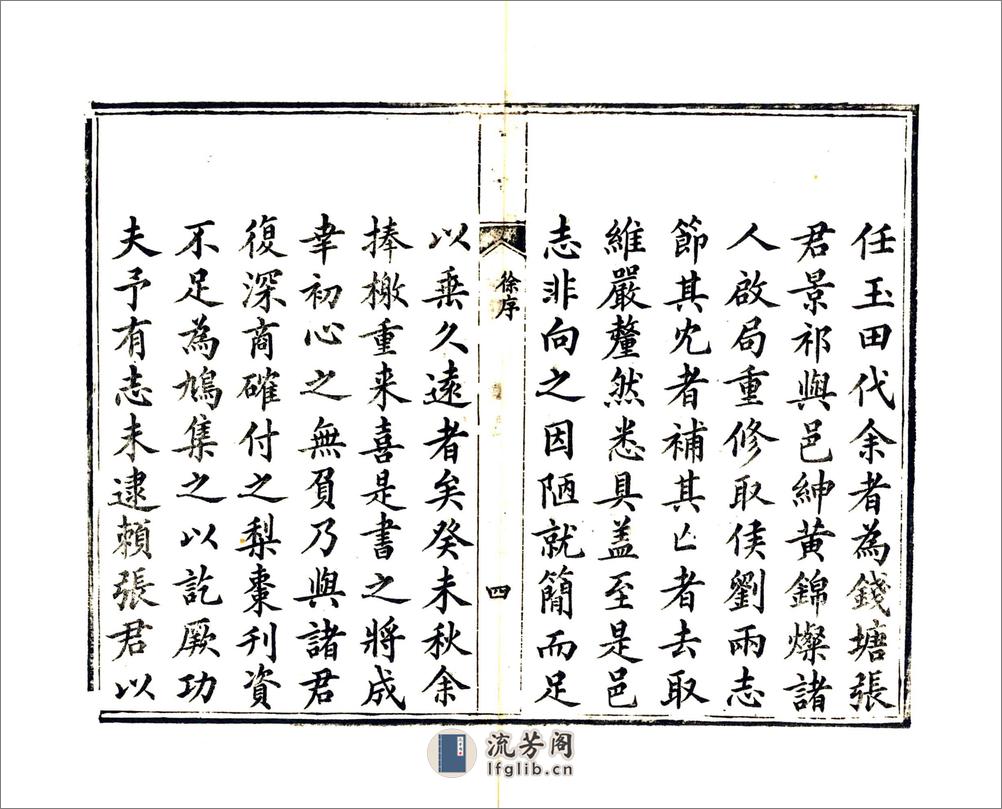 任玉田代余者為錢塘張
君景祁與邑紳黃錦燦諸
人啟局重修取侯劉兩志
節其冗者補其亡者去取
維嚴釐然悉具蓋至是邑
志非向之因陋就簡而足
徐序
四
以垂久遠者矣癸未秋余
捧檄重来喜是書之將成
幸初心之無負乃與諸君
復深商確付之梨棗刊資
不足為鳩集之以訖厥功
夫予有志未逮賴張君以
流芳阁
lfglib.cn